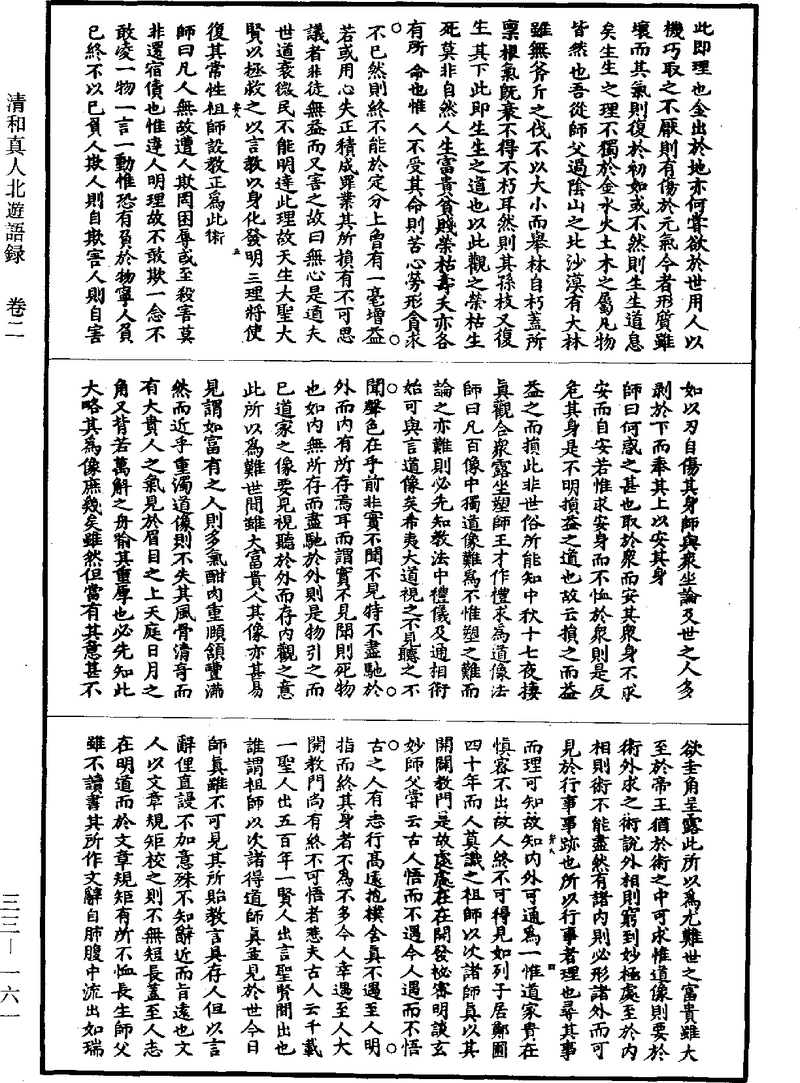 清和真人北遊語録 卷二
三三—一六一
此即理也金出於地亦何嘗欲於世用人以
機巧取之不厭則有傷於元氣令者形質雖
壞而其氣則復於初如或不然則生生道息
矣生生之理不獨於金水火土木之屬凡物
皆然也吾從師父過陰山之北沙漠有大林
雖無斧斤之伐不以大小而舉林自朽蓋所
稟根氣既衰不得不朽耳然則其孫枝又復
生其下此即生生之道也以此觀之榮枯生
死莫非自然人生富貴貧賤榮枯壽夭亦各
有所命也惟人不受其命則苦心勞形貪求
不已然則終不能於定分上曾有一毫增益
若或用心失正積成罪業其所損有不可思
議者非徒無益而又害之故曰無心是道夫
世道衰微民不能明達此理故天生大聖大
賢以拯救之以言教以身化發明三理將使
復其常性祖師設教正爲此術
師曰凡人無故遭人欺罔困辱或至殺害莫
非還宿債也惟達人明理故不敢欺一念不
敢凌一物一言一動惟恐有負於物寧人負
已終不以已負人欺人則自欺害人則自害
如以刃自傷其身師與衆坐論及世之人多
剥於下而奉其上以安其身
師曰何惑之甚也取於衆而安其衆身不求
安而自安若惟求安身而不恤於衆則是反
危其身是不明損益之道也故云損之而益
益之而損此非世俗所能知中秋十七夜棲
真觀合衆露坐塑師王才作禮求爲道像法
師曰凡百像中獨道像難爲不惟塑之難而
論之亦難則必先知教法中禮儀及通相術
始可與言道像矣希夷大道視之不見聽之不
聞聲色在乎前非實不聞不見特不盡馳於
外而内有所存焉耳而謂實不見聞則死物
也如内無所存而盡馳於外則是物引之而
已道家之像要見視聽於外而存内觀之意
此所以爲難世間雖大富貴人其像亦甚易
見謂如富有之人則多氣酣肉重頤頷豐滿
然而近乎重濁道像則不失其風骨清奇而
有大貴人之氣見於眉目之上天庭日月之
角又背若萬斛之舟喻其重厚也必先知此
大略其爲像庶幾矣雖然但當有其意甚不
欲圭角呈露此所以爲尤難世之富貴雖大
至於帝王猶於術之中可求惟道像則要於
術外求之術說外相則窮到妙極處至於内
相則術不能盡然有諸内則必形諸外而可
見於行事事跡也所以行事者理也尋其事
而理可知故知内外可通爲一惟道家貴在
慎密不出故人終不可得見如列子居鄭圃
四十年而人莫識之祖師以次諸師真以其
開闡教門是故處處在在開發秘密明談玄
妙師父嘗云古人悟而不遇今人遇而不悟
古之人有志行高遠抱樸含真不遇至人明
指而終其身者不為不多今人幸遇至人大
開教門尚有終不可悟者悲夫古人云千載
一聖人出五百年一賢人出言聖賢間出也
誰謂祖師以次諸得道師真並見於世今日
師真雖不可見其所貽教言具存人但以言
辭俚直謾不加意殊不知辭近而旨遠也文
人以文章規矩校之則不無短長蓋至人志
在明道而於文章規矩有所不恤長生師父
雖不讀書其所作文辭自肺腹中流出如瑞